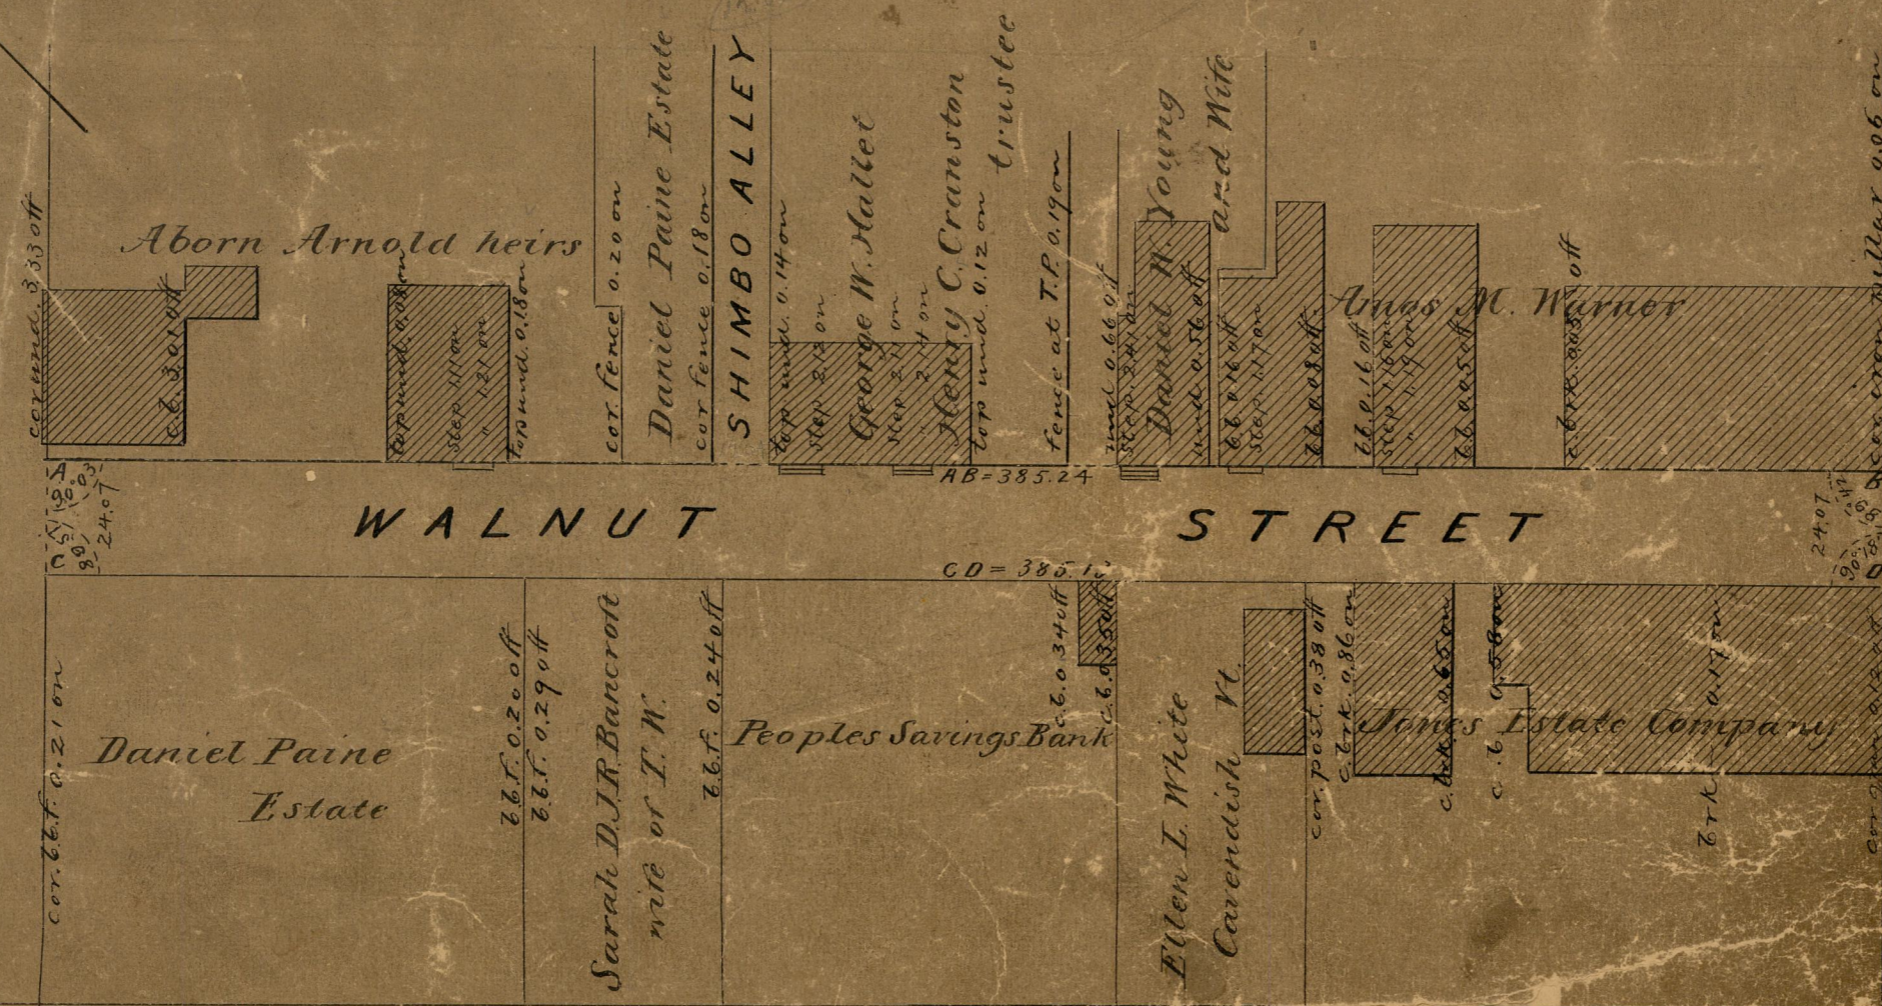 cor und. 3.33 off
Aborn Arnold heirs
c.b. 3.01 off
top und. 0.08 on
Step 1.11 on
" 1.21 on
top und. 0.18 on
cor fence 0.20 on
Daniel Paine Estate
cor fence 0.18 on
SHIMBO ALLEY
top und. 0.14 on
Step 2.12 on
George W. Hallet
Step 2.11 on
" 2.14 on
Henry C. Cranston
trustee
top und. 0.12 on
fence at T.P. 0.19 on
und 0.66 off
Step 2.41 on
Daniel W. Young
and Wife
und 0.56 off
bb 0.16 off
Step 1.17 on
bb 0.08 off
Amos M. Warner
bb 0.16 off
Step 1.16 on
" 1.19 on
bb 0.05 off
c. brk. off
cor iron pillar 0.06 on
A
AB=385.24
B
24.07
WALNUT STREET
24.07
C
CD = 385.
D
cor. b.b.f. 0.21 on
Daniel Paine
Estate
b.b.f. 0.20 off
b.b.f. 0.29 off
Sarah D.J.R. Bancroft
wife of T. W.
b.b.f. 0.24 off
Peoples Savings Bank
c.b. 0.34 off
c.b. 0.35 off
Ellen L. White
Cavendish Vt.
cor. post. 0.38 off
c. brk. 0.86 on
c. brk. 0.65 on
Jones Estate Company
c.b. 0.58 on
brk 0.17 on